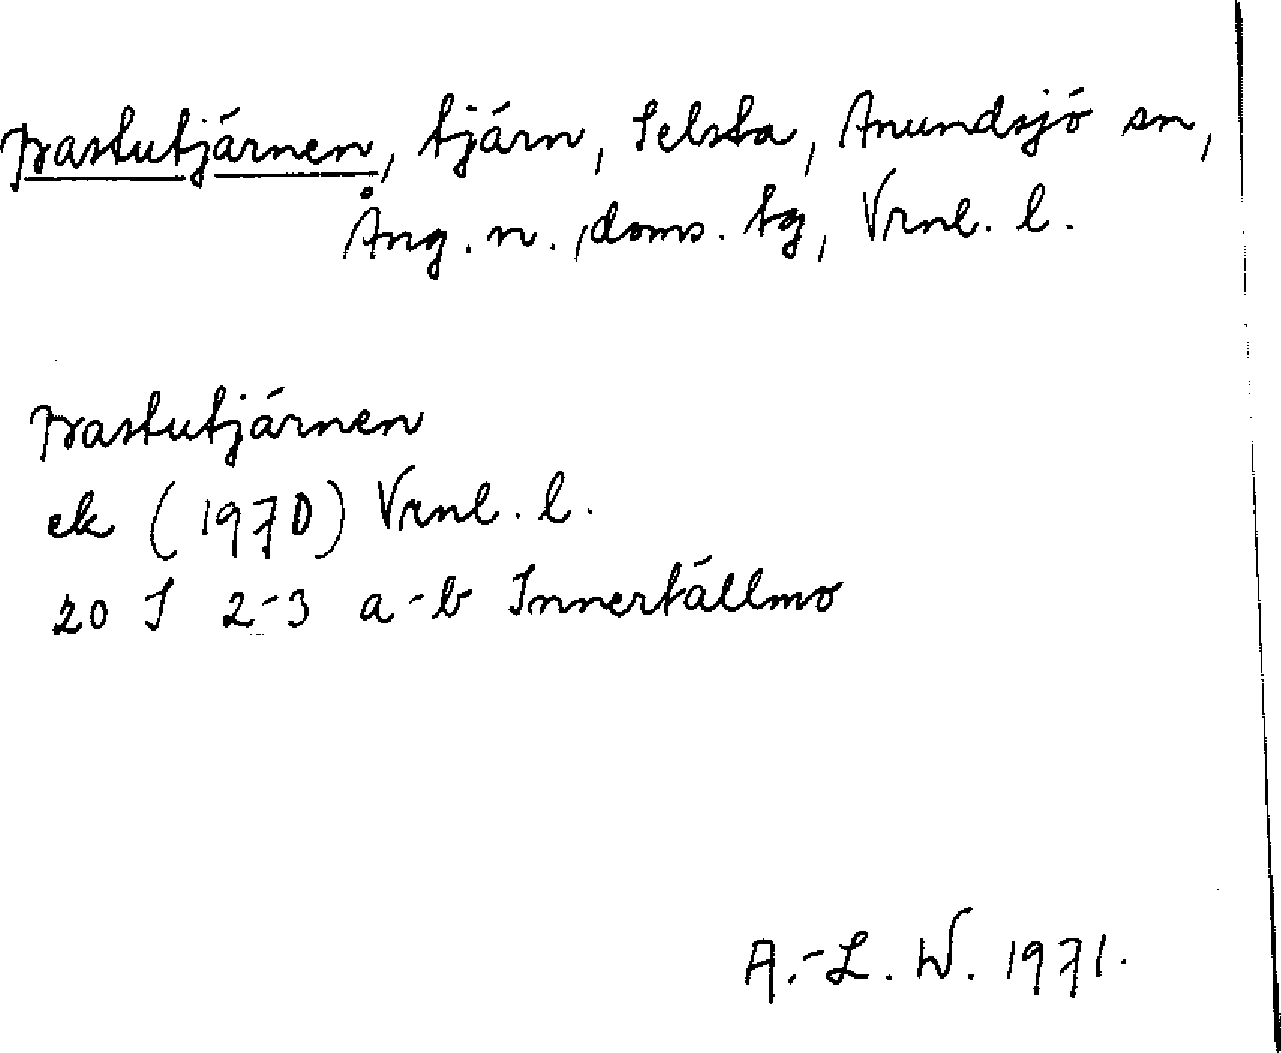 Prastutjärnen, tjärn, Selsta, Anundsjö sn,
Ång. n., doms. tg, Vrnl. l.
Prastutjärnen
ek (1970) Vrnl. l.
20 I 2-3 a-b Innertällmo
A.-L. W. 1971.